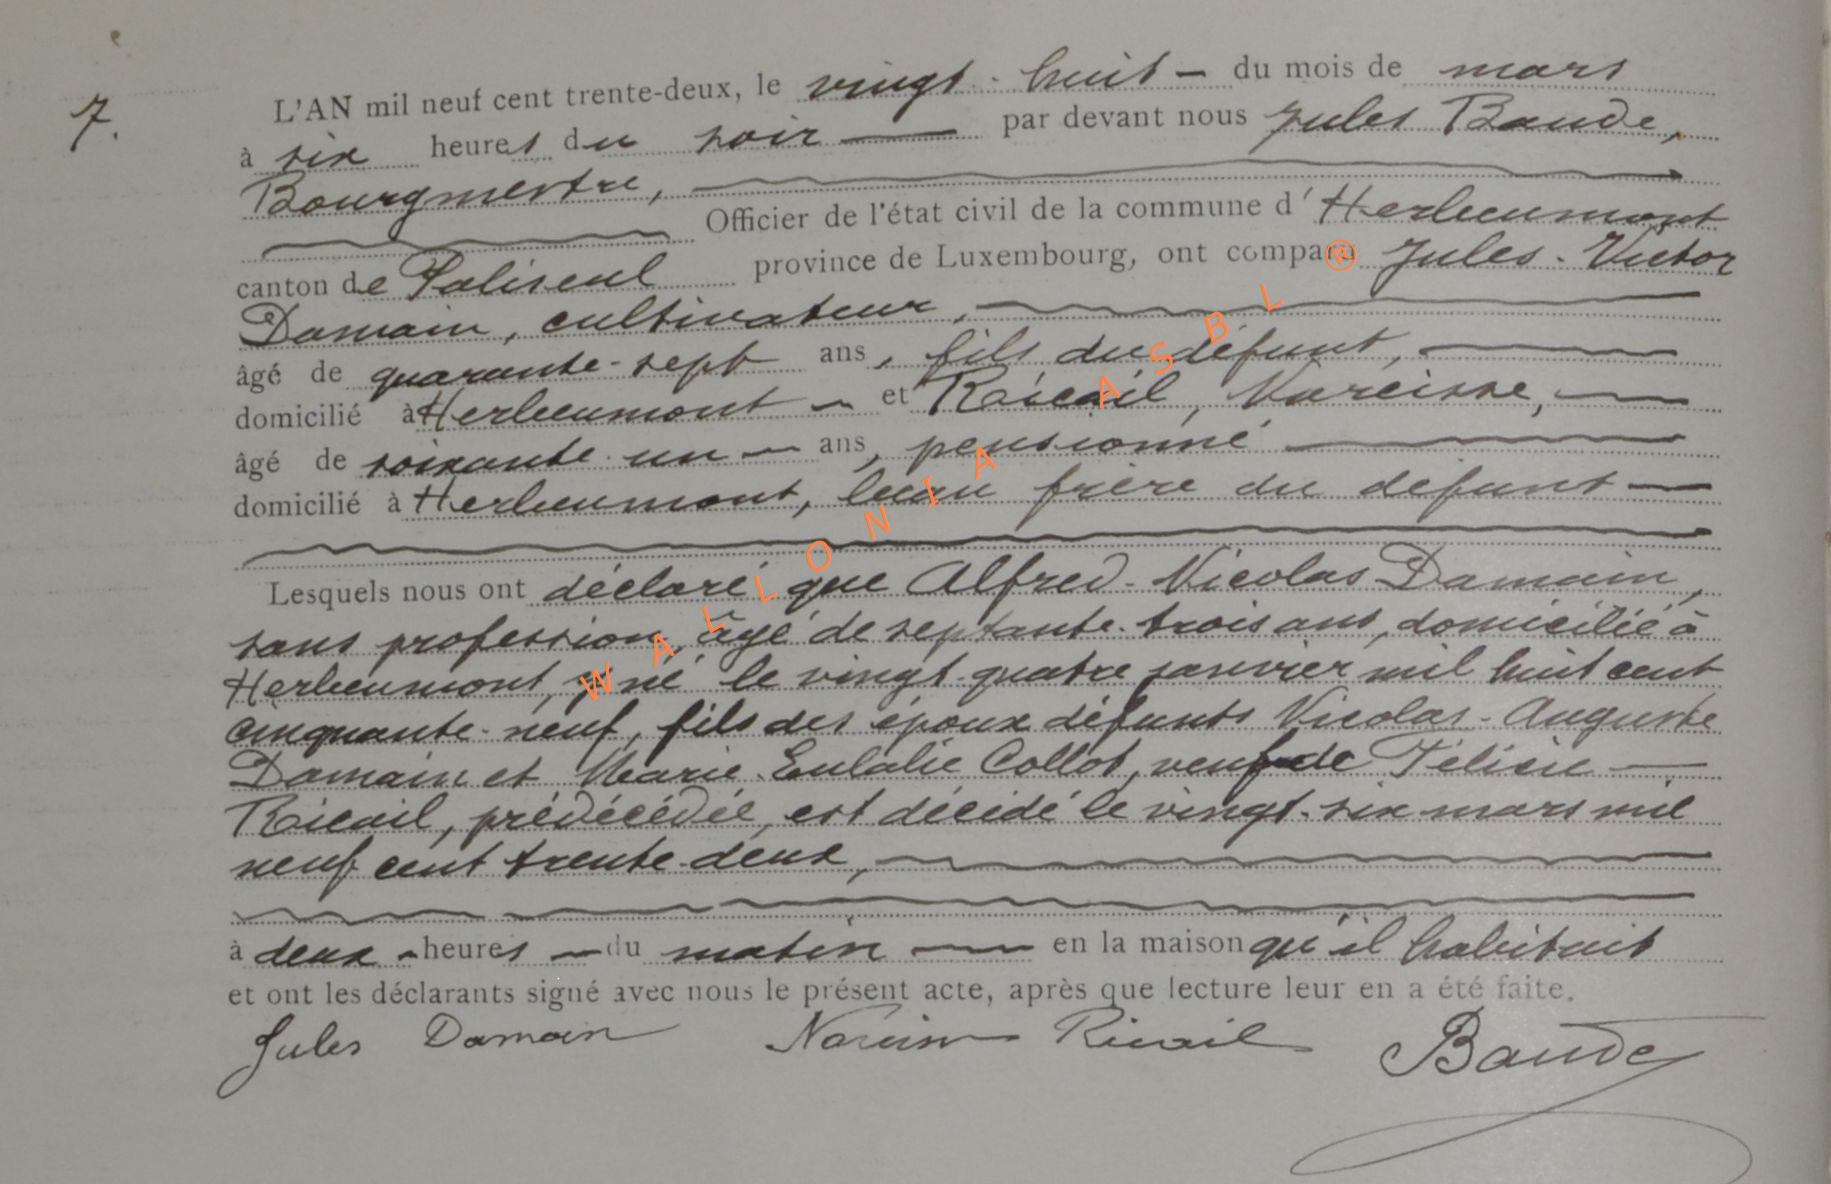 7.
L'AN mil neuf cent trente-deux, le vingt-huit - du mois de mars
à six heures du soir par devant nous Jules Baude,
Bourgmestre,
Officier de l'état civil de la commune d'Herbeumont
canton de Paliseul province de Luxembourg, ont comparu Jules-Victor
Damain, cultivateur,
âgé de quarante-sept ans, fils du défunt,
domicilié à Herbeumont et Ricail, Narcisse,
âgé de soixante-un ans, pensionné
domicilié à Herbeumont, beau frère du défunt
Lesquels nous ont déclaré que Alfred-Nicolas Damain,
sans profession, âgé de septante-trois ans, domicilié à
Herbeumont, y né le vingt-quatre janvier mil huit cent
cinquante-neuf, fils des époux défunts Nicolas-Auguste
Damain et Marie-Eulalie Collot, veuf de Félicie
Ricail, prédécédée, est décédé le vingt-six mars mil
neuf cent trente-deux,
à deux heures du matin en la maison qu'il habitait
et ont les déclarants signé avec nous le présent acte, après que lecture leur en a été faite.
Jules Damain Narcisse Ricail Baude
WALLONIA ASBL ®